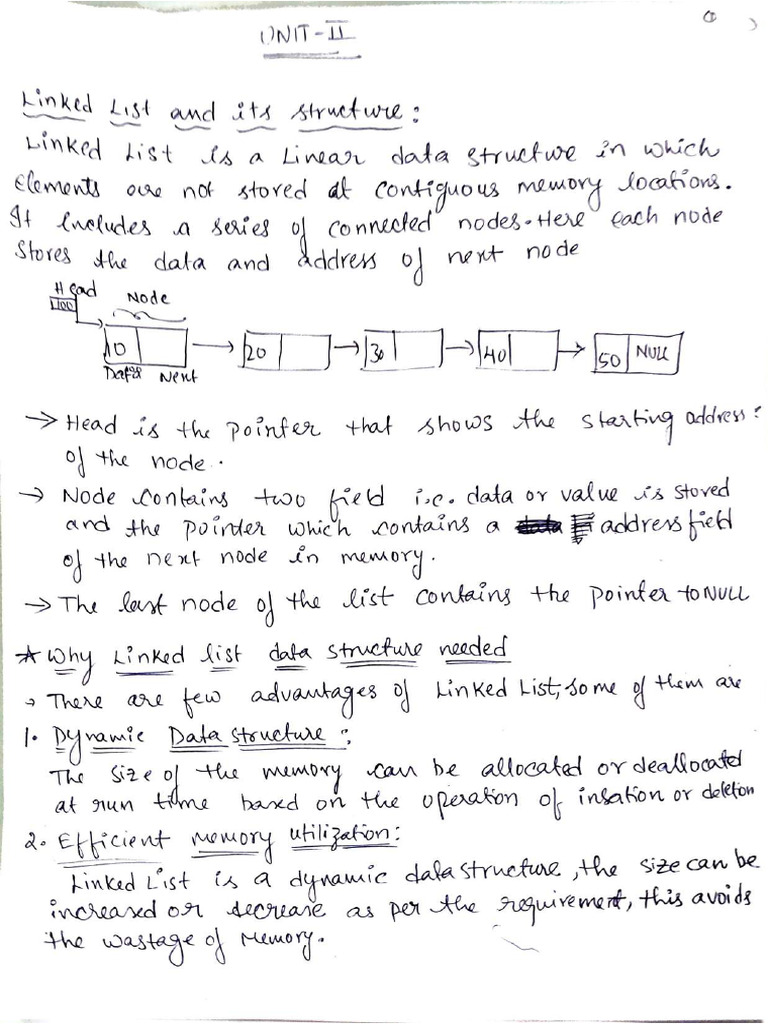 ①
UNIT-II
Linked List and its structure:
Linked List is a Linear data structure in which
Elements are not stored at contiguous memory locations.
It Includes a series of connected nodes. Here each node
Stores the data and address of next node
Head
100
Node
10
20
30
40
50 NULL
Data Next
→ Head is the pointer that shows the starting address:
of the node.
→ Node contains two field i.e. data or value is stored
and the pointer which contains a address field
of the next node in memory.
→ The last node of the list contains the pointer to NULL
* Why Linked list data structure needed
→ There are few advantages of Linked List, some of them are
1. Dynamic Data structure:
The size of the memory can be allocated or deallocated
at run time based on the operation of insation or deletion
2. Efficient memory utilization:
Linked List is a dynamic data structure, the size can be
increased or decrease as per the requirement, this avoids
the wastage of Memory.